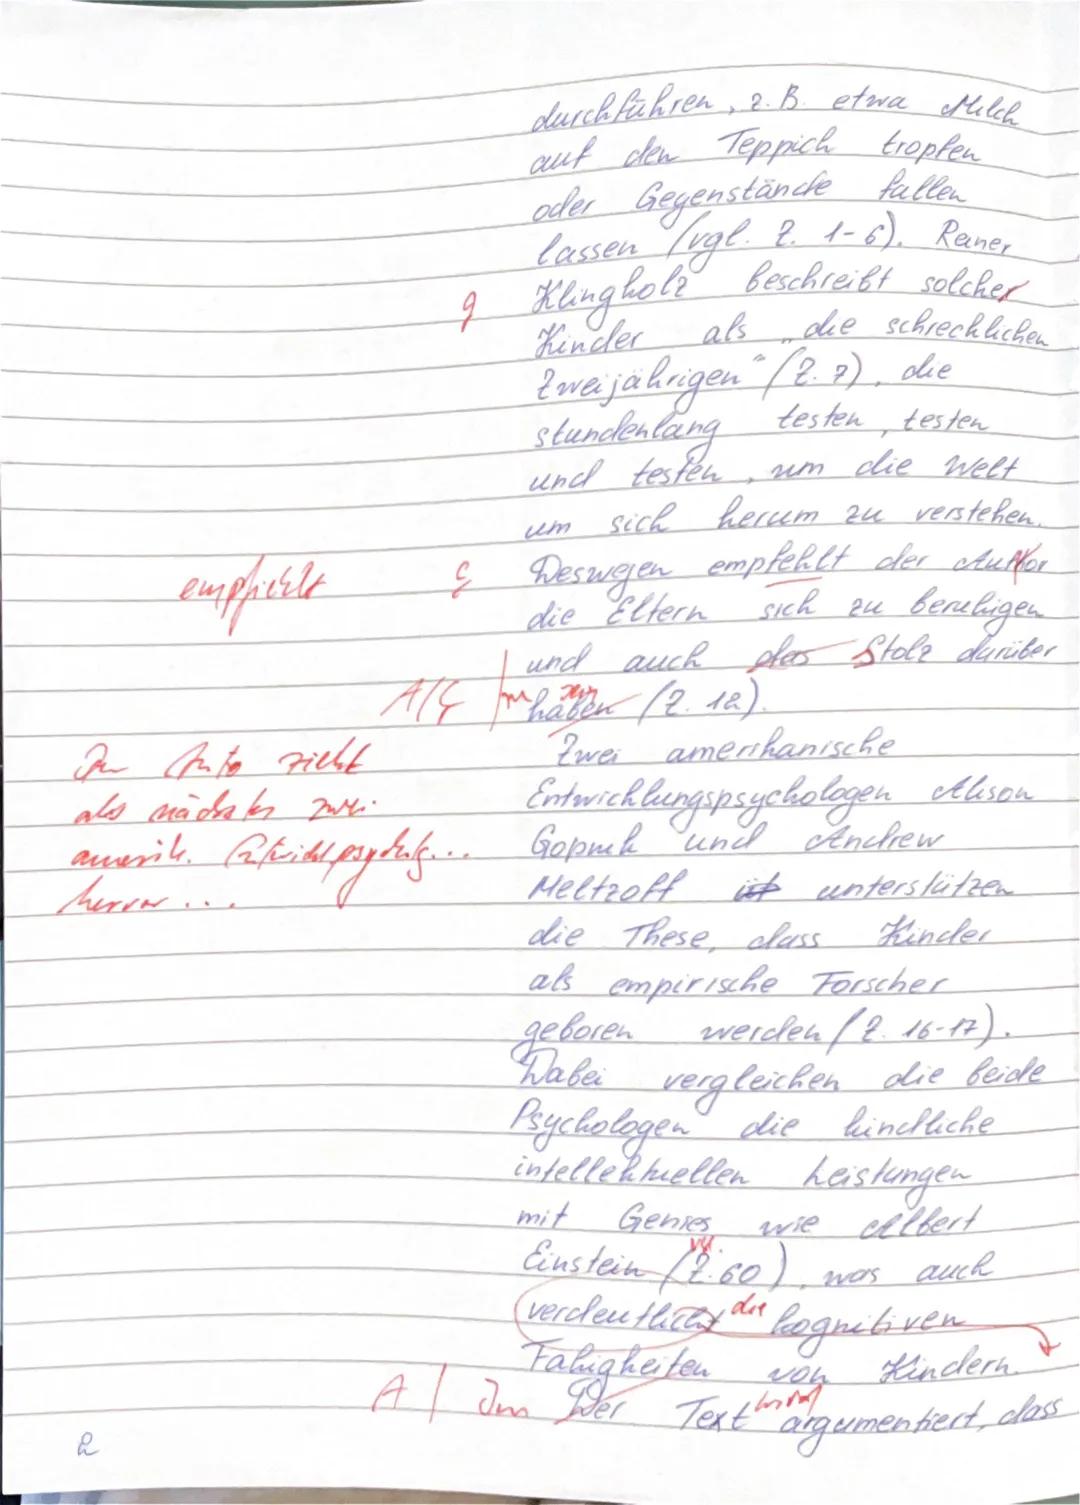 durchführen, z.B. etwa Milch
auf den Teppich tropfen
oder Gegenstände fallen
lassen (vgl. Z. 1-6). Reiner
g Klingholz beschreibt solcher
Kinder als „die schrecklichen
Zweijährigen" (Z. 7), die
stundenlang testen, testen
und testen, um die Welt
um sich herum zu verstehen.
empfiehlt Deswegen empfehlt der Author
die Eltern sich zu beruhigen
und auch das Stolz darüber
A/G haben (Z. 12).
sein
Zwei amerikanische
Entwicklungspsychologen Alison
Gopnik und Andrew
Meltzoff ist unterstützen
die These, dass Kinder
als empirische Forscher
geboren werden (Z. 16-17).
Dabei vergleichen die beide
Psychologen die kindliche
intellektuellen Leistungen
mit Genies wie Albert
Einstein (Z. 60), was auch
verdeutlicht die kognitiven
Fähigkeiten von Kindern.
A / Im Der Text wird argumentiert, dass
zieht
als nächstes zwei
amerik. Entwicklpsycholg...
hervor ...
2